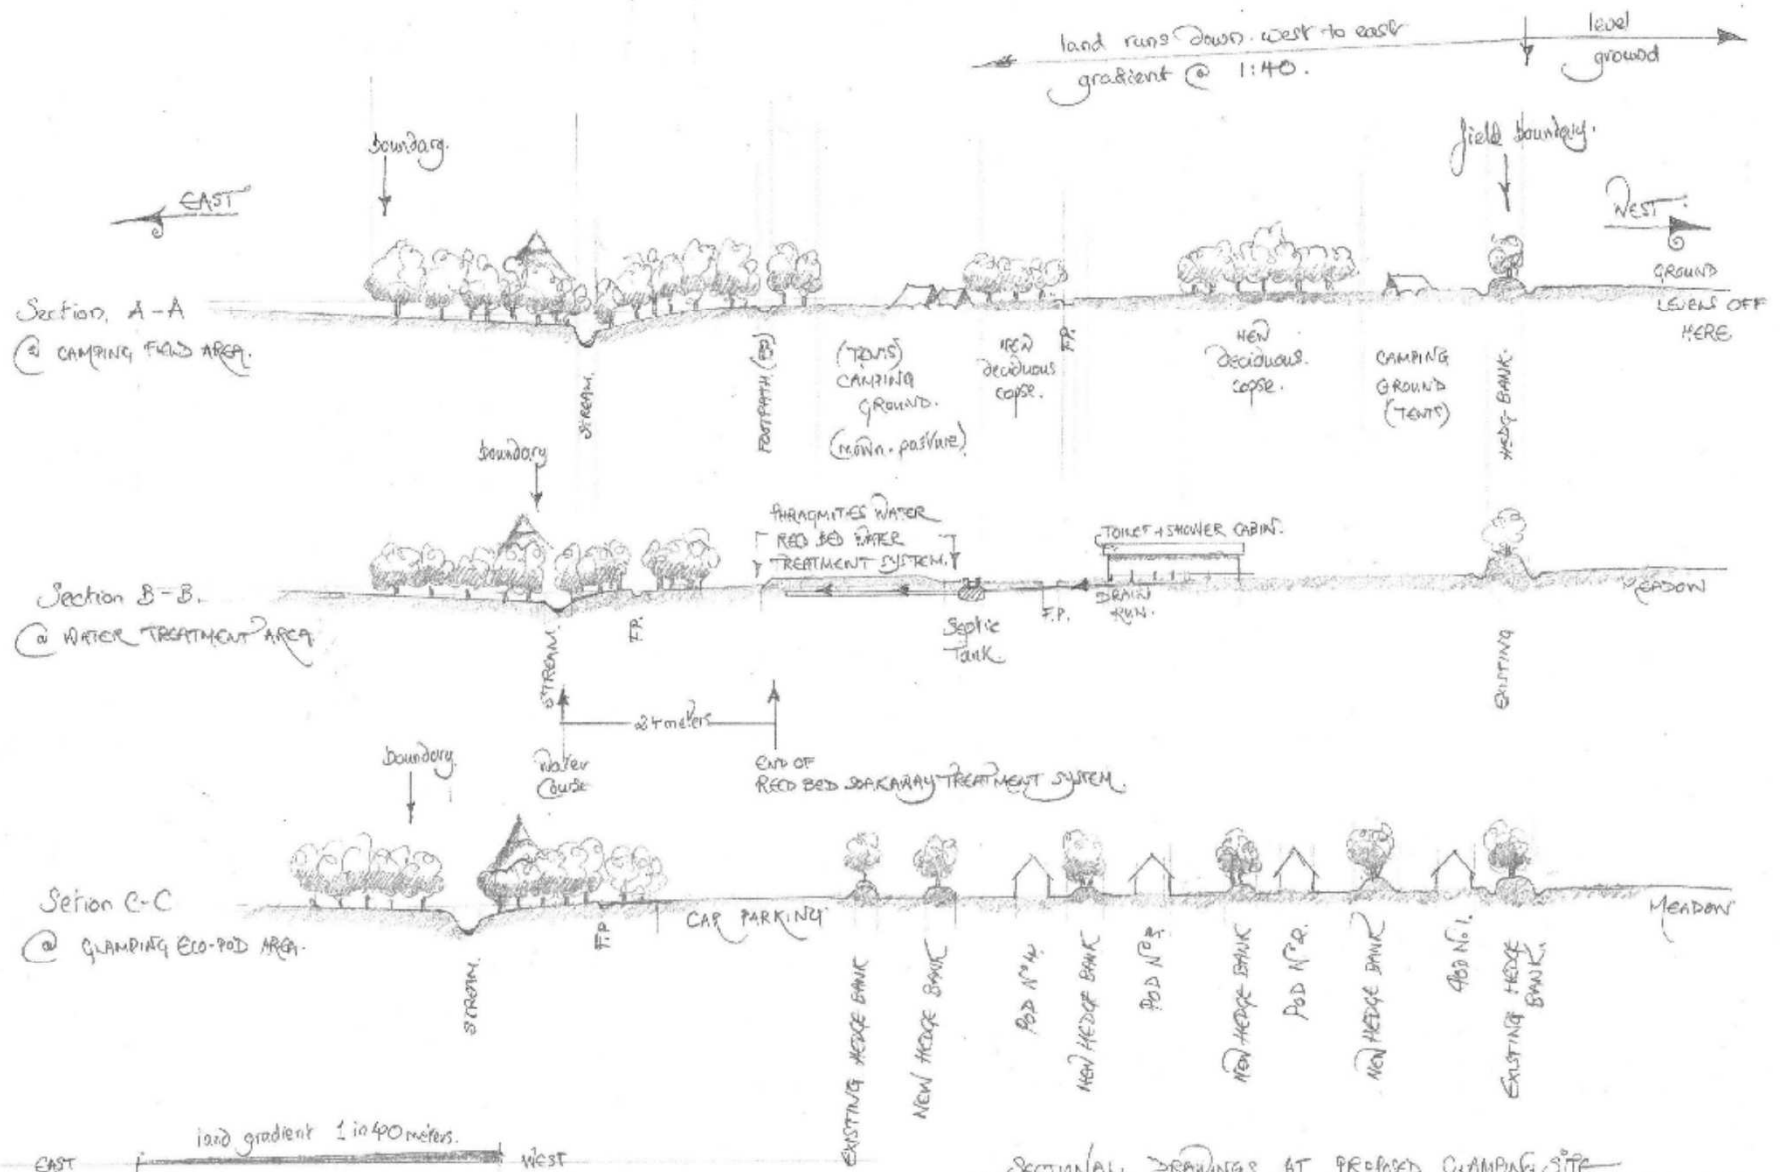 land runs down west to east
gradient @ 1:40.
level
ground
boundary.
field boundary.
EAST
WEST.
Section, A-A
@ CAMPING FIELD AREA.
GROUND
LEVELS OFF
HERE
STREAM.
FOOTPATH (FP)
(TENTS)
CAMPING
GROUND.
(mown pasture)
NEW
deciduous
copse.
F.P.
NEW
deciduous.
copse.
CAMPING
GROUND
(TENTS)
HEDG BANK.
boundary
PHRAGMITES WATER
REED BED WATER
TREATMENT SYSTEM.
TOILET + SHOWER CABIN.
Section B-B.
@ WATER TREATMENT AREA
STREAM.
F.P.
Septic
Tank.
F.P.
DRAIN
RUN.
EXISTING
MEADOW
24 meters
boundary.
Water
Course
END OF
REED BED SOAKAWAY TREATMENT SYSTEM.
Setion C-C
@ GLAMPING ECO-POD AREA.
STREAM.
F.P.
CAR PARKING
EXISTING HEDGE BANK
NEW HEDGE BANK
POD No 4.
NEW HEDGE BANK
POD No 3.
NEW HEDGE BANK
POD No 2.
NEW HEDGE BANK
POD No 1.
EXISTING HEDGE
BANK.
MEADOW
land gradient 1 in 40 meters.
EAST
WEST
SECTIONAL DRAWINGS AT PROPOSED GLAMPING SITE